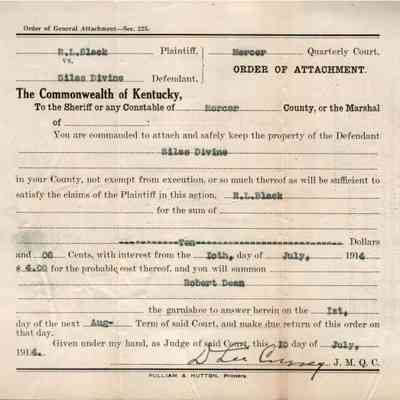 Order of General Attachment—Sec. 225.
R.L.Black Plaintiff, Mercer Quarterly Court.
vs.
Silas Divine Defendant, ORDER OF ATTACHMENT.
The Commonwealth of Kentucky,
To the Sheriff or any Constable of Mercer County, or the Marshal
of :
You are commanded to attach and safely keep the property of the Defendant
Silas Divine
in your County, not exempt from execution, or so much thereof as will be sufficient to
satisfy the claims of the Plaintiff in this action, R.L.Black
for the sum of
Ten Dollars
and 00 Cents, with interest from the 10th, day of July, 1914
$ 4.00 for the probable cost thereof, and you will summon
Robert Dean
the garnishee to answer herein on the 1st,
day of the next Aug- Term of said Court, and make due return of this order on
that day.
Given under my hand, as Judge of said Court, this 10 day of July,
1914. J. M. Q. C.
PULLIAM & HUTTON, Printers.